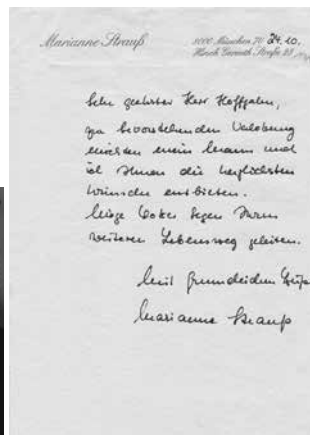 Marianne Strauß
8000 München 70 24.10.
Hirsch-Gereuth-Straße 28
Sehr geehrter Herr Hoffjahn,
zur bevorstehenden Verlobung
möchten mein Mann und
ich Ihnen die herzlichsten
Wünsche entbieten.
Möge Gottes Segen Ihren
weiteren Lebensweg geleiten.
Mit freundlichen
Marianne Strauß